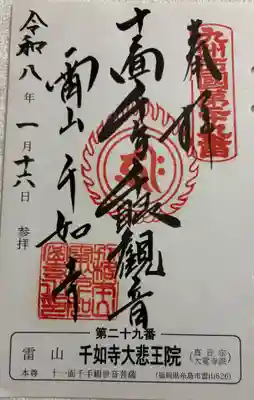 奉拝
九州西国第二十九番
十一面千手千眼観音
雷山 千如寺
令和八年一月十六日 参拝
第二十九番
雷山 千如寺大悲王院
(真言宗大覚寺派)
本尊 十一面千手観世音菩薩
(福岡県糸島市雷山626)